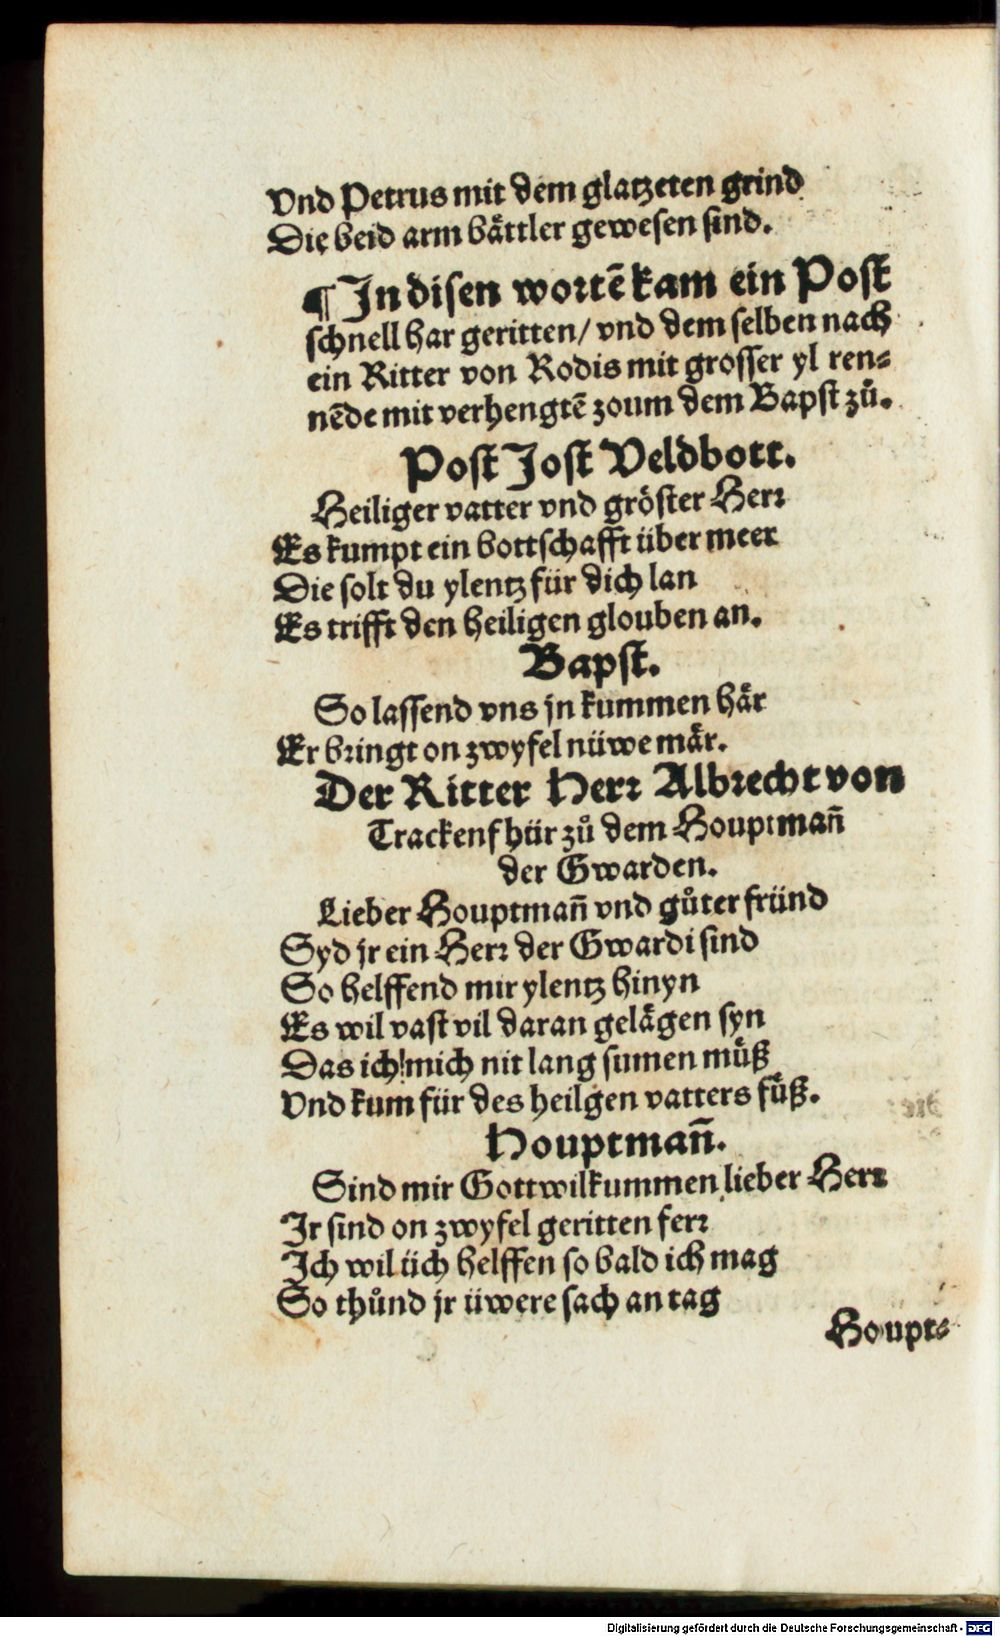 Vnd Petrus mit dem glatzeten grind
Die beid arm båttler gewesen sind.
¶ In disen wortē kam ein Post
schnell har geritten/ vnd dem selben nach
ein Ritter von Rodis mit grosser yl ren⸗
nēde mit verhengtē zoum dem Bapst zů.
Post Jost Veldbott.
Heiliger vatter vnd gröster Herr
Es kumpt ein bottschafft über meer
Die solt du ylentz für dich lan
Es trifft den heiligen glouben an.
Bapst.
So lassend vns jn kummen här
Er bringt on zwyfel nüwe mär.
Der Ritter Herr Albrecht von
Trackenfhür zů dem Houptmañ
der Gwarden.
Lieber Houptmañ vnd gůter fründ
Syd jr ein Herr der Gwardi sind
So helffend mir ylentz hinyn
Es wil vast vil daran gelägen syn
Das ich mich nit lang sumen müß
Vnd kum für des heilgen vatters füß.
Houptmañ.
Sind mir Gottwilkummen lieber Herr
Ir sind on zwyfel geritten ferr
Ich wil üch helffen so bald ich mag
So thůnd jr üwere sach an tag
Houpt⸗
Digitalisierung gefördert durch die Deutsche Forschungsgemeinschaft - DFG